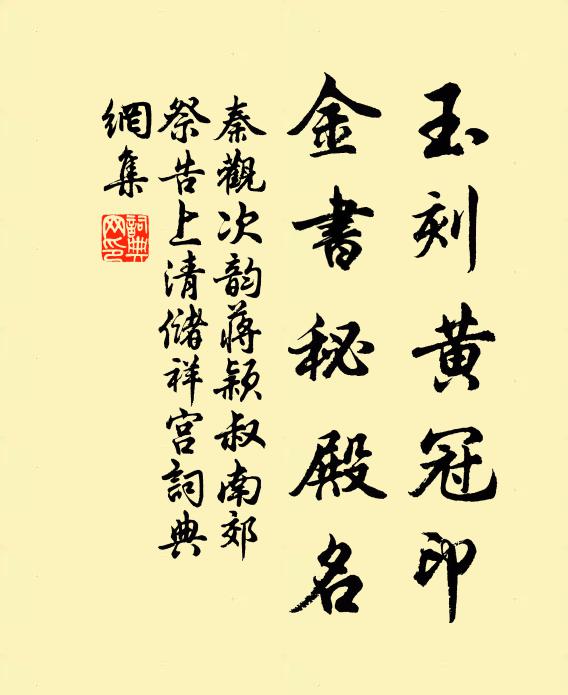 玉刻黄冠印
金書秘殿名
秦觀次韵蔣颖叔南郊
祭告上清儲祥宫詞典
網集
詞典
网印